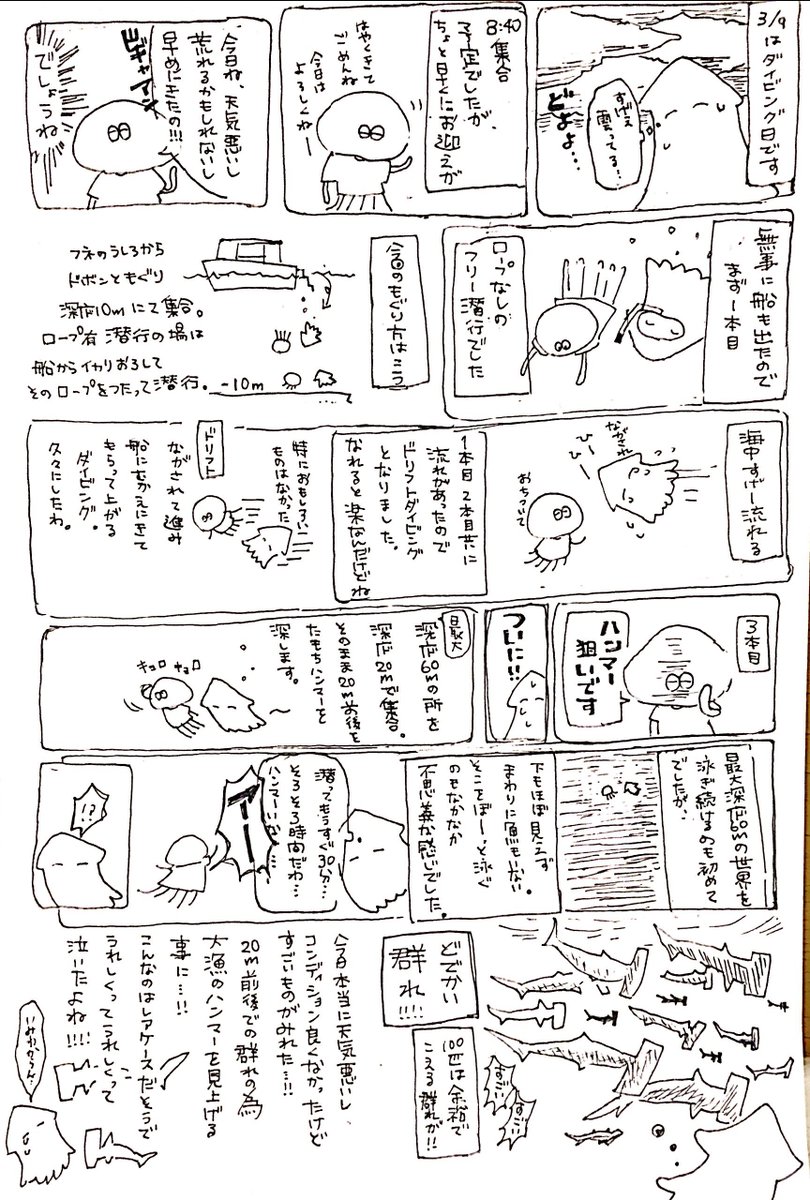 3/9
はダイビング日です
すげえ
曇ってる…
どよよ…
8:40
集合
予定でしたが、
ちょと早くにお迎えが
はやくきて
ごめんね
今日は
よろしくねー
今日ね、天気悪いし
荒れるかもしれないし
早めにきたの!!!
ギャマン
でしょうね
無事に船も出たので
まず1本目
ロープなしの
フリー潜行でした
今回のもぐり方はこう
フネのうしろから
ドボンともぐり
深度10mにて集合。
ロープ有潜行の場は
船からイカリおろして
そのロープをつたって潜行。
-10m
海中すげー流れる
ながされ
ひー
ひー
おちついて
1本目2本目共に
流れがあったので
ドリフトダイビング
となりました。
なれると楽なんだけどね
特におもしろい
ものはなかった
ドリフト
ながされて進み
船にむかえにきて
もらって上がる
ダイビング。
久々にしたわ。
3本目
ハンマー
狙いです
ついに!!
最大
深度60mの所を
深度20mで集合。
そのまま20m前後を
たもちハンマーを
探します。
キョロ
キョロ
最大深度60mの世界を
泳ぎ続けるのも初めて
でしたが、
下もほぼ見えず
まわりに魚もいない
そこをぼーっと泳ぐ
のもなかなか
不思議な感じでした。
潜ってもうすぐ30分…
そろそろ時間だわ…
ハンマーいな…
!?
どでかい
群れ!!!!
100匹は余裕で
こえる群れが!!
すごい
すごい
今日本当に天気悪いし
コンディション良くなかったけど
すごいものがみれた…!!
20m前後での群れの為
大漁のハンマーを見上げる
事に…!!
こんなのはレアケースだそうで
うれしくってうれしくって
泣いたよね!!!!
いみわからん…